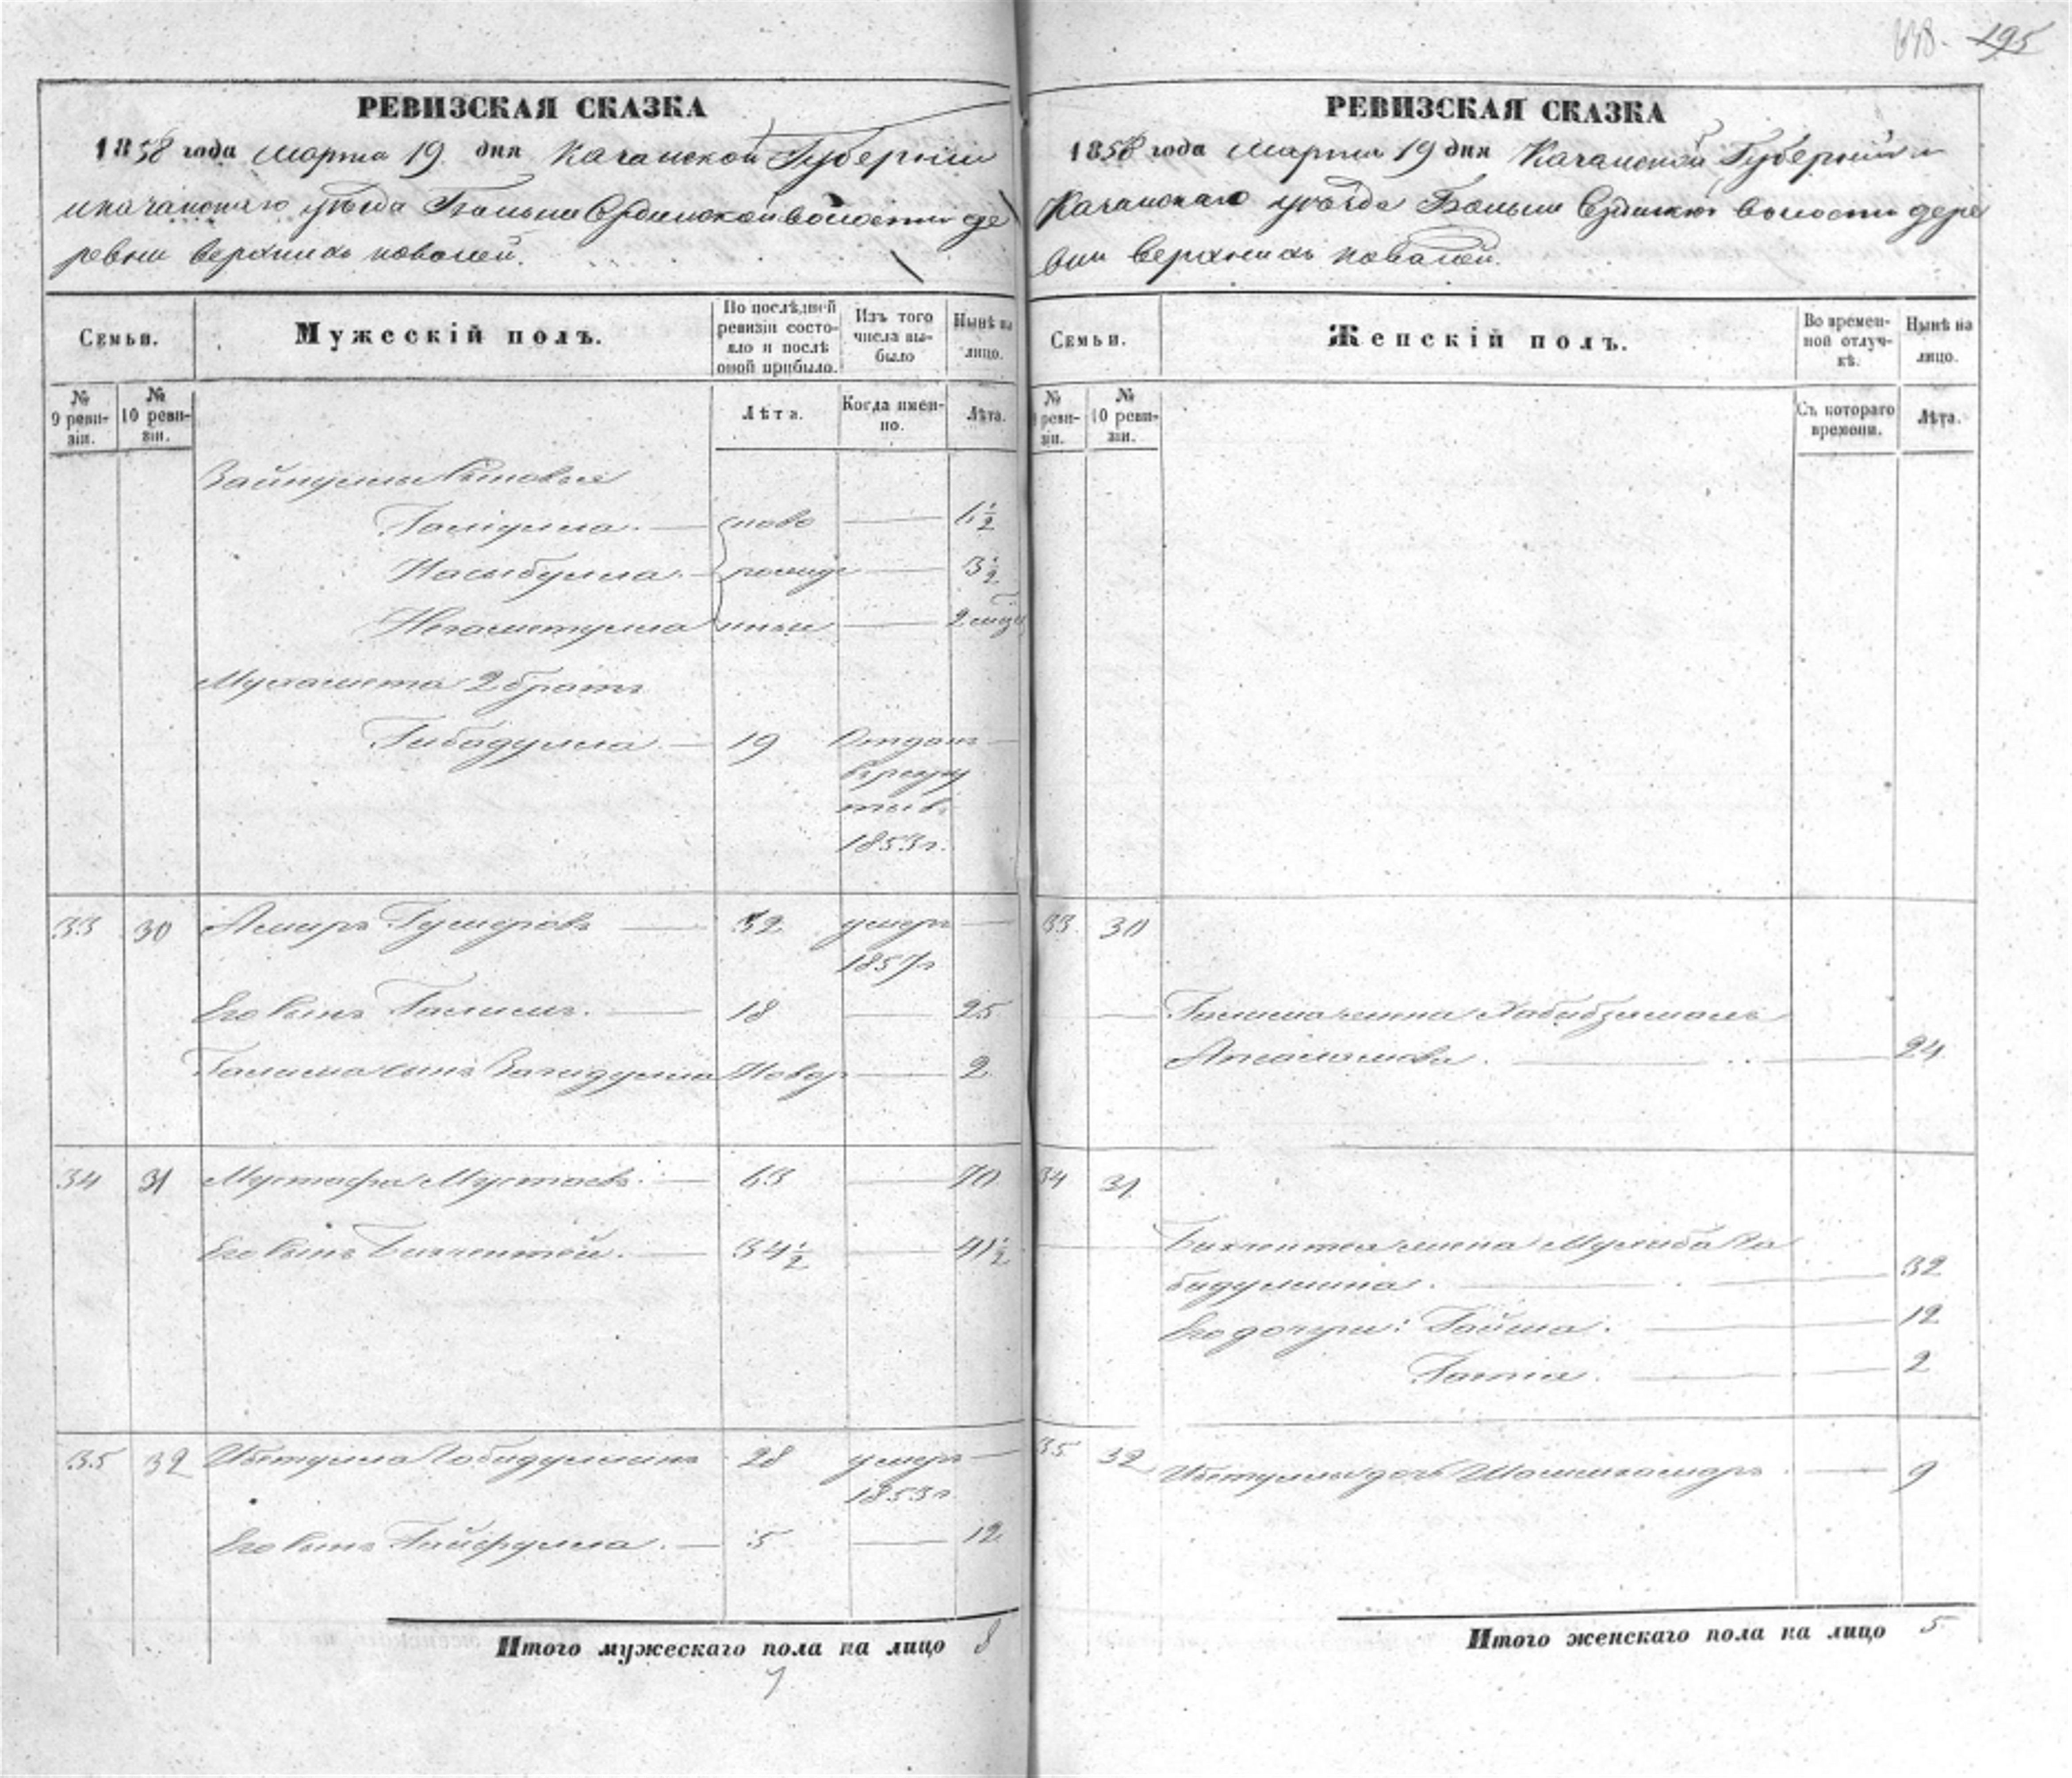 195
РЕВИЗСКАЯ СКАЗКА
1858 года марта 19 дня Казанской Губернии
и казанскаго уѣзда Больше Сердинской волости де
ревни верхнихъ ковалей.
Семьи.
Мужескій полъ.
По послѣдней ревизіи состояло и послѣ оной прибыло.
Изъ того числа выбыло
Нынѣ на лицо.
№ 9 ревизіи.
№ 10 ревизіи.
Лѣта.
Когда именно.
Лѣта.
Зайнуллы сыновья
Галiулла. — ново — 1 1/2
Насыбулла. — рожде — 3 1/2
Негаметулла нные — 2
2 братъ
Гибадулла. — 19 Отданъ —
въ рекру
ты въ
1853 г.
33 30 Амиръ Гумеровъ — 52 умеръ —
1857 г
Его сынъ Галимъ. — 18 — 25
Галима сынъ Вагидулла Новор — 2
34 31 Мустафа Мустаевъ. — 63 — 70
Его сынъ Бикчинтей. — 34 1/2 — 41 1/2
35 32 Габидуллинъ 28 умеръ —
1853 г
Его сынъ — 5 — 12
Итого мужескаго пола на лицо 8
РЕВИЗСКАЯ СКАЗКА
1858 года марта 19 дня Казанской Губернии и
Казанскаго уѣзда Больше Сердинской волости дере
вни верхнихъ ковалей.
Семьи.
Женскій полъ.
Во временной отлучкѣ.
Нынѣ на лицо.
№ 9 ревизіи.
№ 10 ревизіи.
Съ котораго времени.
Лѣта.
33 30
— Галима жена Хабибзямаль
— 24
34 31
— Бикчинтея жена Га
бидуллина. — 32
Его дочери: Гайша. — 12
— 2
35 32 дочь Шамсикамаръ. — 9
Итого женскаго пола на лицо 5